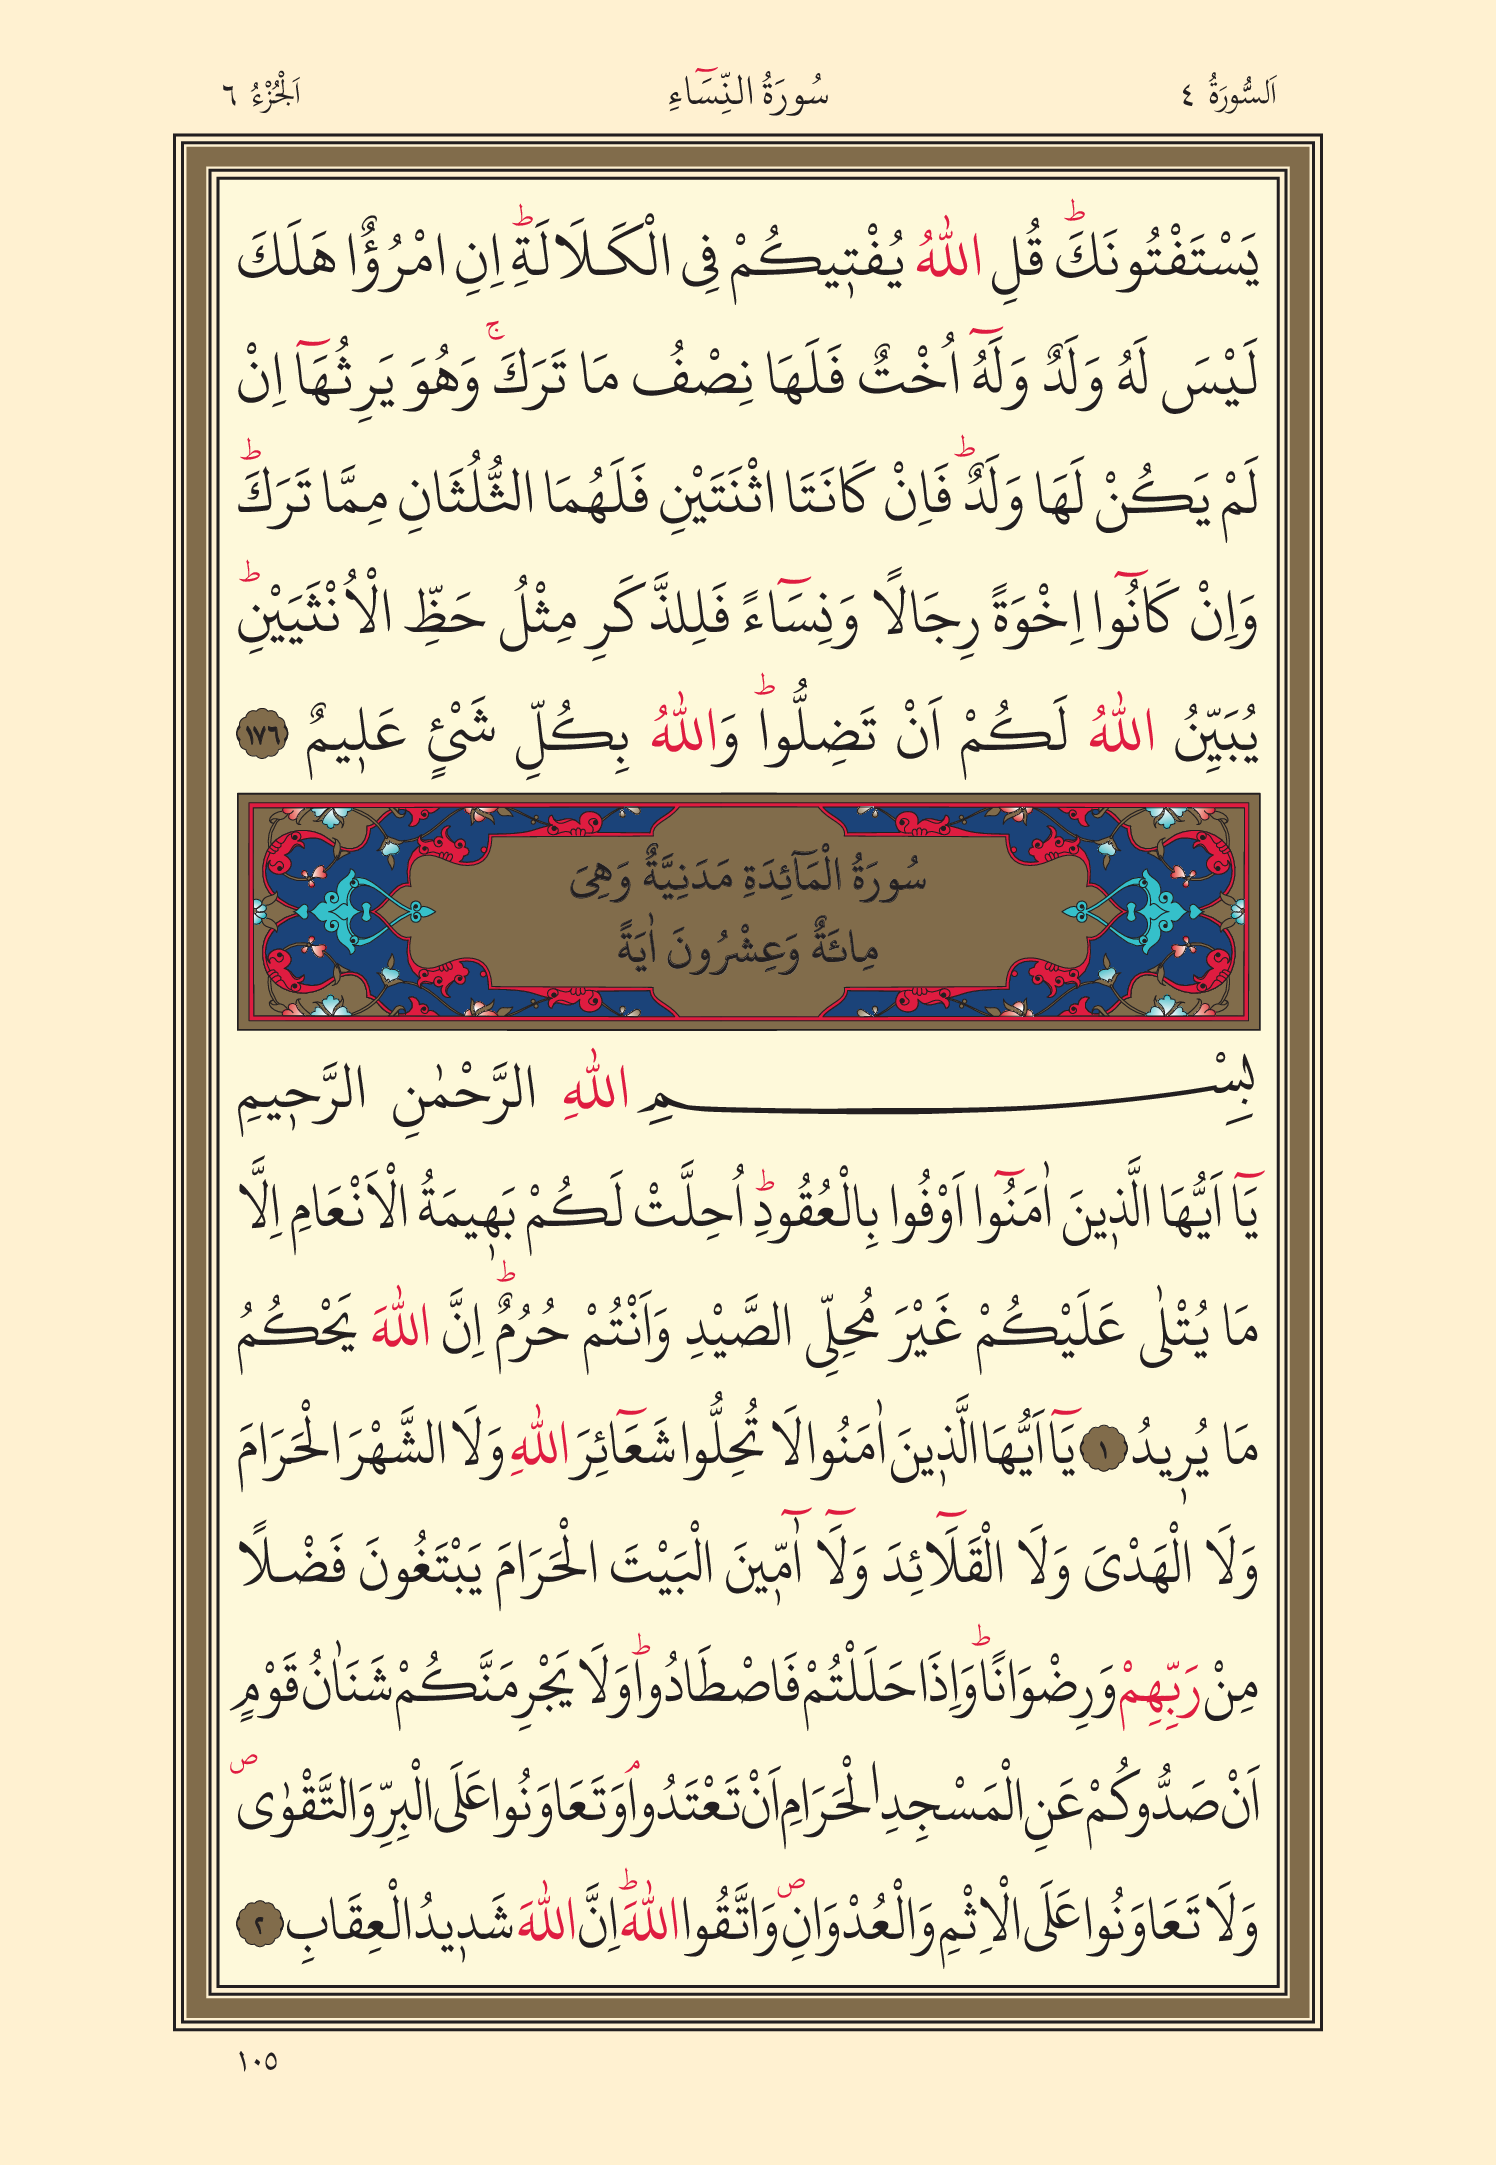 اَلسُّورَةُ ٤ سُورَةُ النِّسَٓاءِ اَلْجُزْءُ ٦
يَسْتَفْتُونَكَۜ قُلِ اللّٰهُ يُفْت۪يكُمْ فِى الْكَلَالَةِۜ اِنِ امْرُؤٌا هَلَكَ
لَيْسَ لَهُ وَلَدٌ وَلَهُٓ اُخْتٌ فَلَهَا نِصْفُ مَا تَرَكَۚ وَهُوَ يَرِثُهَٓا اِنْ
لَمْ يَكُنْ لَهَا وَلَدٌۜ فَاِنْ كَانَتَا اثْنَتَيْنِ فَلَهُمَا الثُّلُثَانِ مِمَّا تَرَكَۜ
وَاِنْ كَانُٓوا اِخْوَةً رِجَالًا وَنِسَٓاءً فَلِلذَّكَرِ مِثْلُ حَظِّ الْاُنْثَيَيْنِۜ
يُبَيِّنُ اللّٰهُ لَكُمْ اَنْ تَضِلُّواۜ وَاللّٰهُ بِكُلِّ شَیْئٍ عَل۪يمٌ ١٧٦
سُورَةُ الْمَٓائِدَةِ مَدَنِيَّةٌ وَهِىَ
مِائَةٌ وَعِشْرُونَ اٰيَةً
بِسْمِ اللّٰهِ الرَّحْمٰنِ الرَّح۪يمِ
يَٓا اَيُّهَا الَّذ۪ينَ اٰمَنُٓوا اَوْفُوا بِالْعُقُودِۜ اُحِلَّتْ لَكُمْ بَه۪يمَةُ الْاَنْعَامِ اِلَّا
مَا يُتْلٰى عَلَيْكُمْ غَيْرَ مُحِلِّى الصَّيْدِ وَاَنْتُمْ حُرُمٌۜ اِنَّ اللّٰهَ يَحْكُمُ
مَا يُر۪يدُ ١ يَٓا اَيُّهَا الَّذ۪ينَ اٰمَنُوا لَا تُحِلُّوا شَعَٓائِرَ اللّٰهِ وَلَا الشَّهْرَ الْحَرَامَ
وَلَا الْهَدْىَ وَلَا الْقَلَٓائِدَ وَلَٓا آٰمّ۪ينَ الْبَيْتَ الْحَرَامَ يَبْتَغُونَ فَضْلًا
مِنْ رَبِّهِمْ وَرِضْوَانًاۜ وَاِذَا حَلَلْتُمْ فَاصْطَادُواۜ وَلَا يَجْرِمَنَّكُمْ شَنَاٰنُ قَوْمٍ
اَنْ صَدُّوكُمْ عَنِ الْمَسْجِدِ الْحَرَامِ اَنْ تَعْتَدُواۢ وَتَعَاوَنُوا عَلَى الْبِرِّ وَالتَّقْوٰىۖ
وَلَا تَعَاوَنُوا عَلَى الْاِثْمِ وَالْعُدْوَانِۖ وَاتَّقُوا اللّٰهَۜ اِنَّ اللّٰهَ شَد۪يدُ الْعِقَابِ ٢
١٠٥